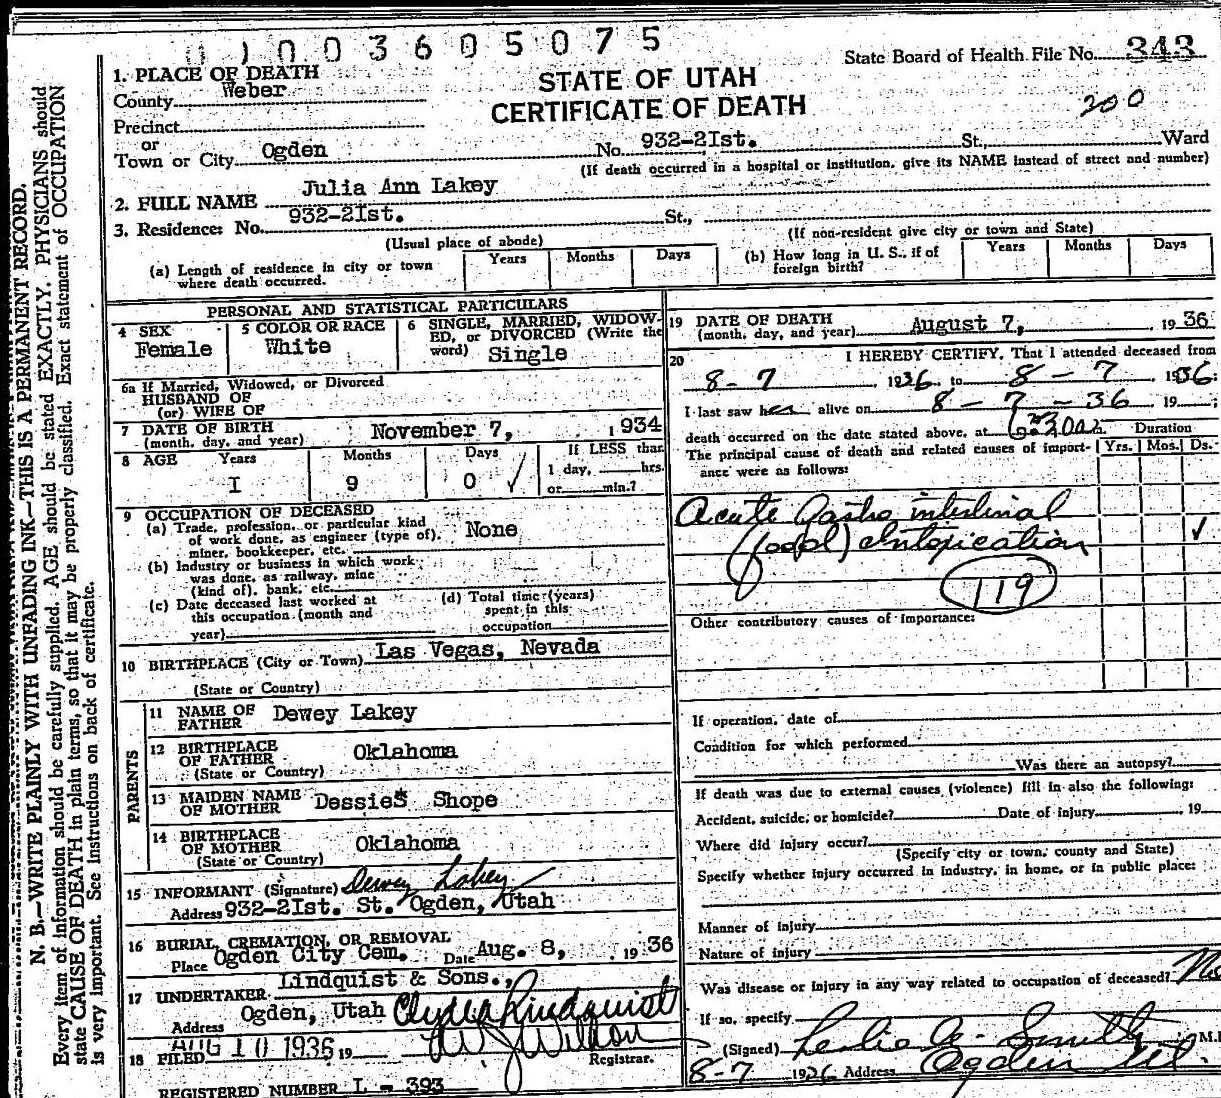 0 1 0 0 3 6 0 5 0 7 5
State Board of Health File No. 343
STATE OF UTAH
CERTIFICATE OF DEATH
200
1. PLACE OF DEATH
County Weber
Precinct
or
Town or City Ogden No. 932-2Ist. St., Ward
(If death occurred in a hospital or institution, give its NAME instead of street and number)
2. FULL NAME Julia Ann Lakey
3. Residence: No. 932-2Ist. St.,
(Usual place of abode) (If non-resident give city or town and State)
(a) Length of residence in city or town where death occurred. Years Months Days
(b) How long in U. S., if of foreign birth? Years Months Days
PERSONAL AND STATISTICAL PARTICULARS
4 SEX Female
5 COLOR OR RACE White
6 SINGLE, MARRIED, WIDOW-
ED, or DIVORCED (Write the
word) Single
6a If Married, Widowed, or Divorced
HUSBAND OF
(or) WIFE OF
7 DATE OF BIRTH
(month, day, and year) November 7, 1934
8 AGE Years Months Days If LESS than
1 day, hrs.
or min.?
I 9 0
9 OCCUPATION OF DECEASED
(a) Trade, profession, or particular kind
of work done, as engineer (type of), None
miner, bookkeeper, etc.
(b) Industry or business in which work
was done, as railway, mine
(kind of), bank, etc.
(c) Date deceased last worked at
this occupation (month and
year)
(d) Total time (years)
spent in this
occupation
10 BIRTHPLACE (City or Town) Las Vegas, Nevada
(State or Country)
PARENTS
11 NAME OF
FATHER Dewey Lakey
12 BIRTHPLACE
OF FATHER Oklahoma
(State or Country)
13 MAIDEN NAME
OF MOTHER Dessie Shope
14 BIRTHPLACE
OF MOTHER Oklahoma
(State or Country)
15 INFORMANT (Signature) Dewey Lakey
Address 932-2Ist. St. Ogden, Utah
16 BURIAL, CREMATION, OR REMOVAL
Place Ogden City Cem. Date Aug. 8, 1936
17 UNDERTAKER Lindquist & Sons.,
Address Ogden, Utah Clyde Lindquist
18 FILED AUG 10 1936 19
Registrar.
REGISTERED NUMBER L - 393
19 DATE OF DEATH
(month, day, and year) August 7, 1936
20 I HEREBY CERTIFY, That I attended deceased from
8-7 1936 to 8-7 1936;
I last saw her alive on 8-7-36 19 ;
death occurred on the date stated above, at 6:30 a.m. Duration
The principal cause of death and related causes of import- Yrs. Mos. Ds.
ance were as follows:
Acute Gastro intestinal
(food) Intoxication
119
Other contributory causes of importance:
If operation, date of
Condition for which performed
Was there an autopsy?
If death was due to external causes (violence) fill in also the following:
Accident, suicide, or homicide? Date of injury 19
Where did injury occur?
(Specify city or town, county and State)
Specify whether injury occurred in industry, in home, or in public place:
Manner of injury
Nature of injury
Was disease or injury in any way related to occupation of deceased? No
If so, specify
(Signed) Leslie A. Smith M.
8-7 1936 Address Ogden Ut.
N. B.—WRITE PLAINLY WITH UNFADING INK—THIS IS A PERMANENT RECORD.
Every item of information should be carefully supplied. AGE should be stated EXACTLY. PHYSICIANS should
state CAUSE OF DEATH in plain terms, so that it may be properly classified. Exact statement of OCCUPATION
is very important. See instructions on back of certificate.